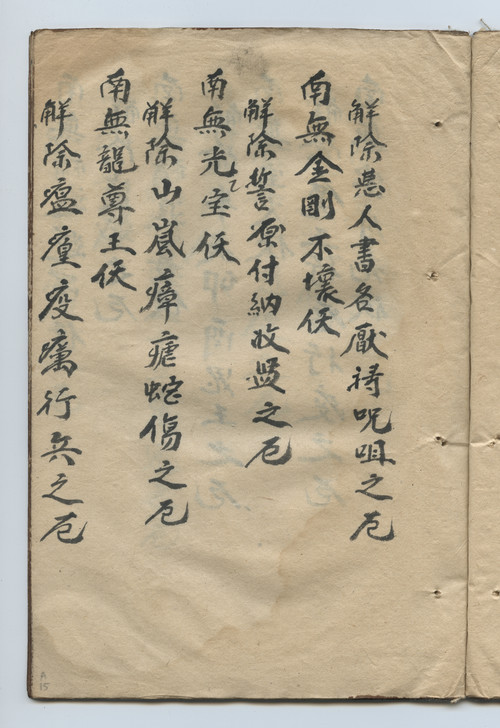 解除恶人書名厭祷呪咀之厄
南無金剛不壞仸
解除誓愿付納收盟之厄
南無光宝仸
解除山嵐瘴瘧蛇傷之厄
南無龍尊王仸
解除瘟瘽疫癘行兵之厄
A
15